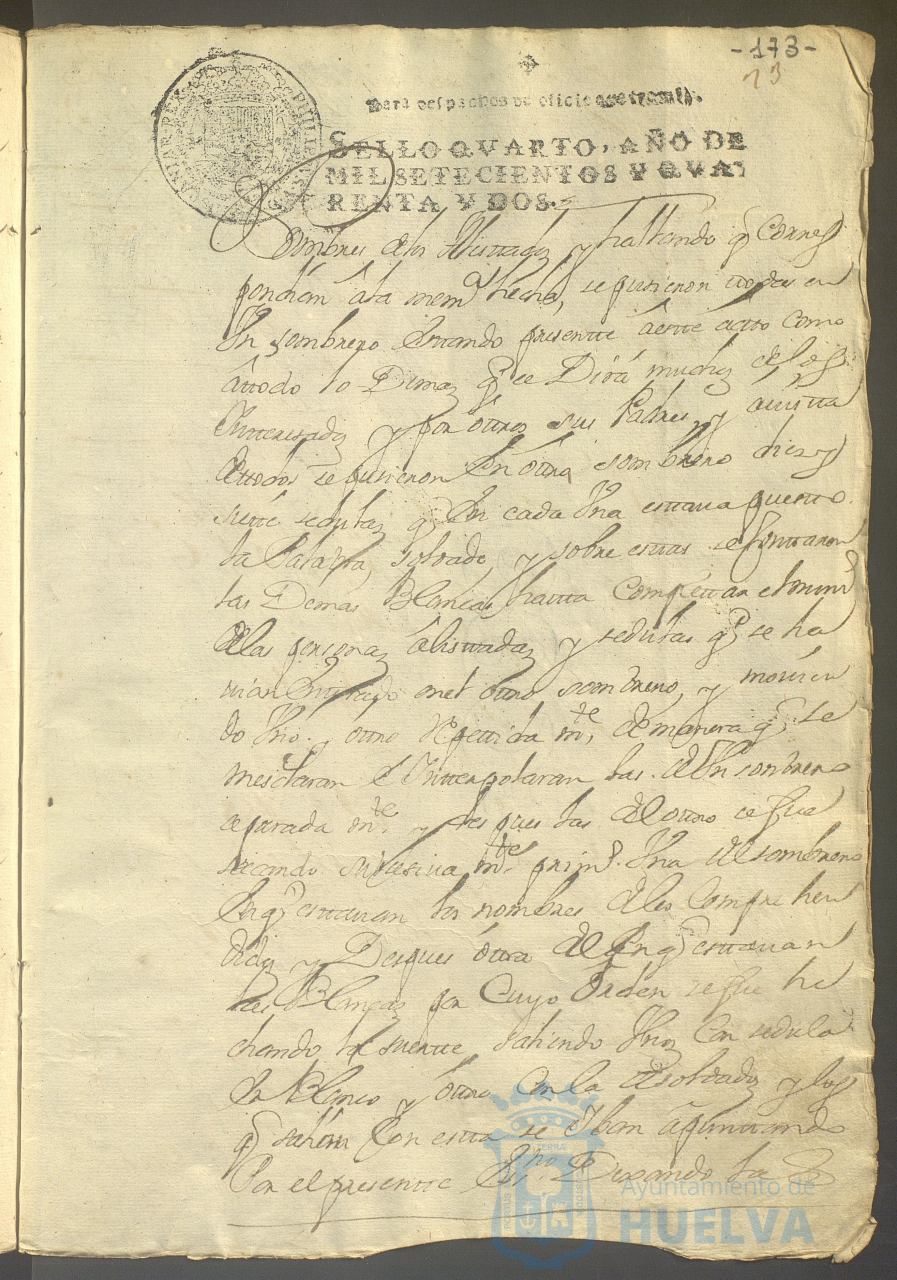 -173-
13
Para despachos de oficio quatro mrs.
SELLO QVARTO, AÑO DE
MIL SETECIENTOS Y QVA-
RENTA Y DOS.
PHILIPUS
REX
nombres de los Alistados y hallando q̃ Corres
pondian â la mem.ª hecha, se pusieron ttodas en
Un sombrero esttando presentte â estte actto como
âttodo lo Demas q̃ se Dirá muchos de los
Ynteresados y por ottros sus Padres, y â vistta
de ttodos se pusieron en ottro sombrero diez y
siette sedulas q̃ en cada Una esttava puestto
la Palabra, soldado, y sobre esttas se Junttaron
las Demas Blancas, hastta Complettar el num.º
de las personas âlisttadas y sedulas q̃ se ha
vian enttrado en el ottro sombrero, y movien
do Uno y ottro Repettida m.te de manera q̃ se
mesclaran e Ynterpolaran las del Un sombrero
separada m.te y despues las del ottro se fue
sacando subcesiva m.te prim.º Una del sombrero
en q̃ esttavan los nombres de los Comprehen
didos y Despues ottra del en q̃ esttavan
las Blancas por Cuyo Orden se fue he
chando la suertte saliendo Unos Con sedula
en Blanco y ottros Con la de soldados y los
q̃ salian Con estta se Yban âpunttando
Por el presentte Ess.no Dexando las
Ayuntamiento de
HUELVA